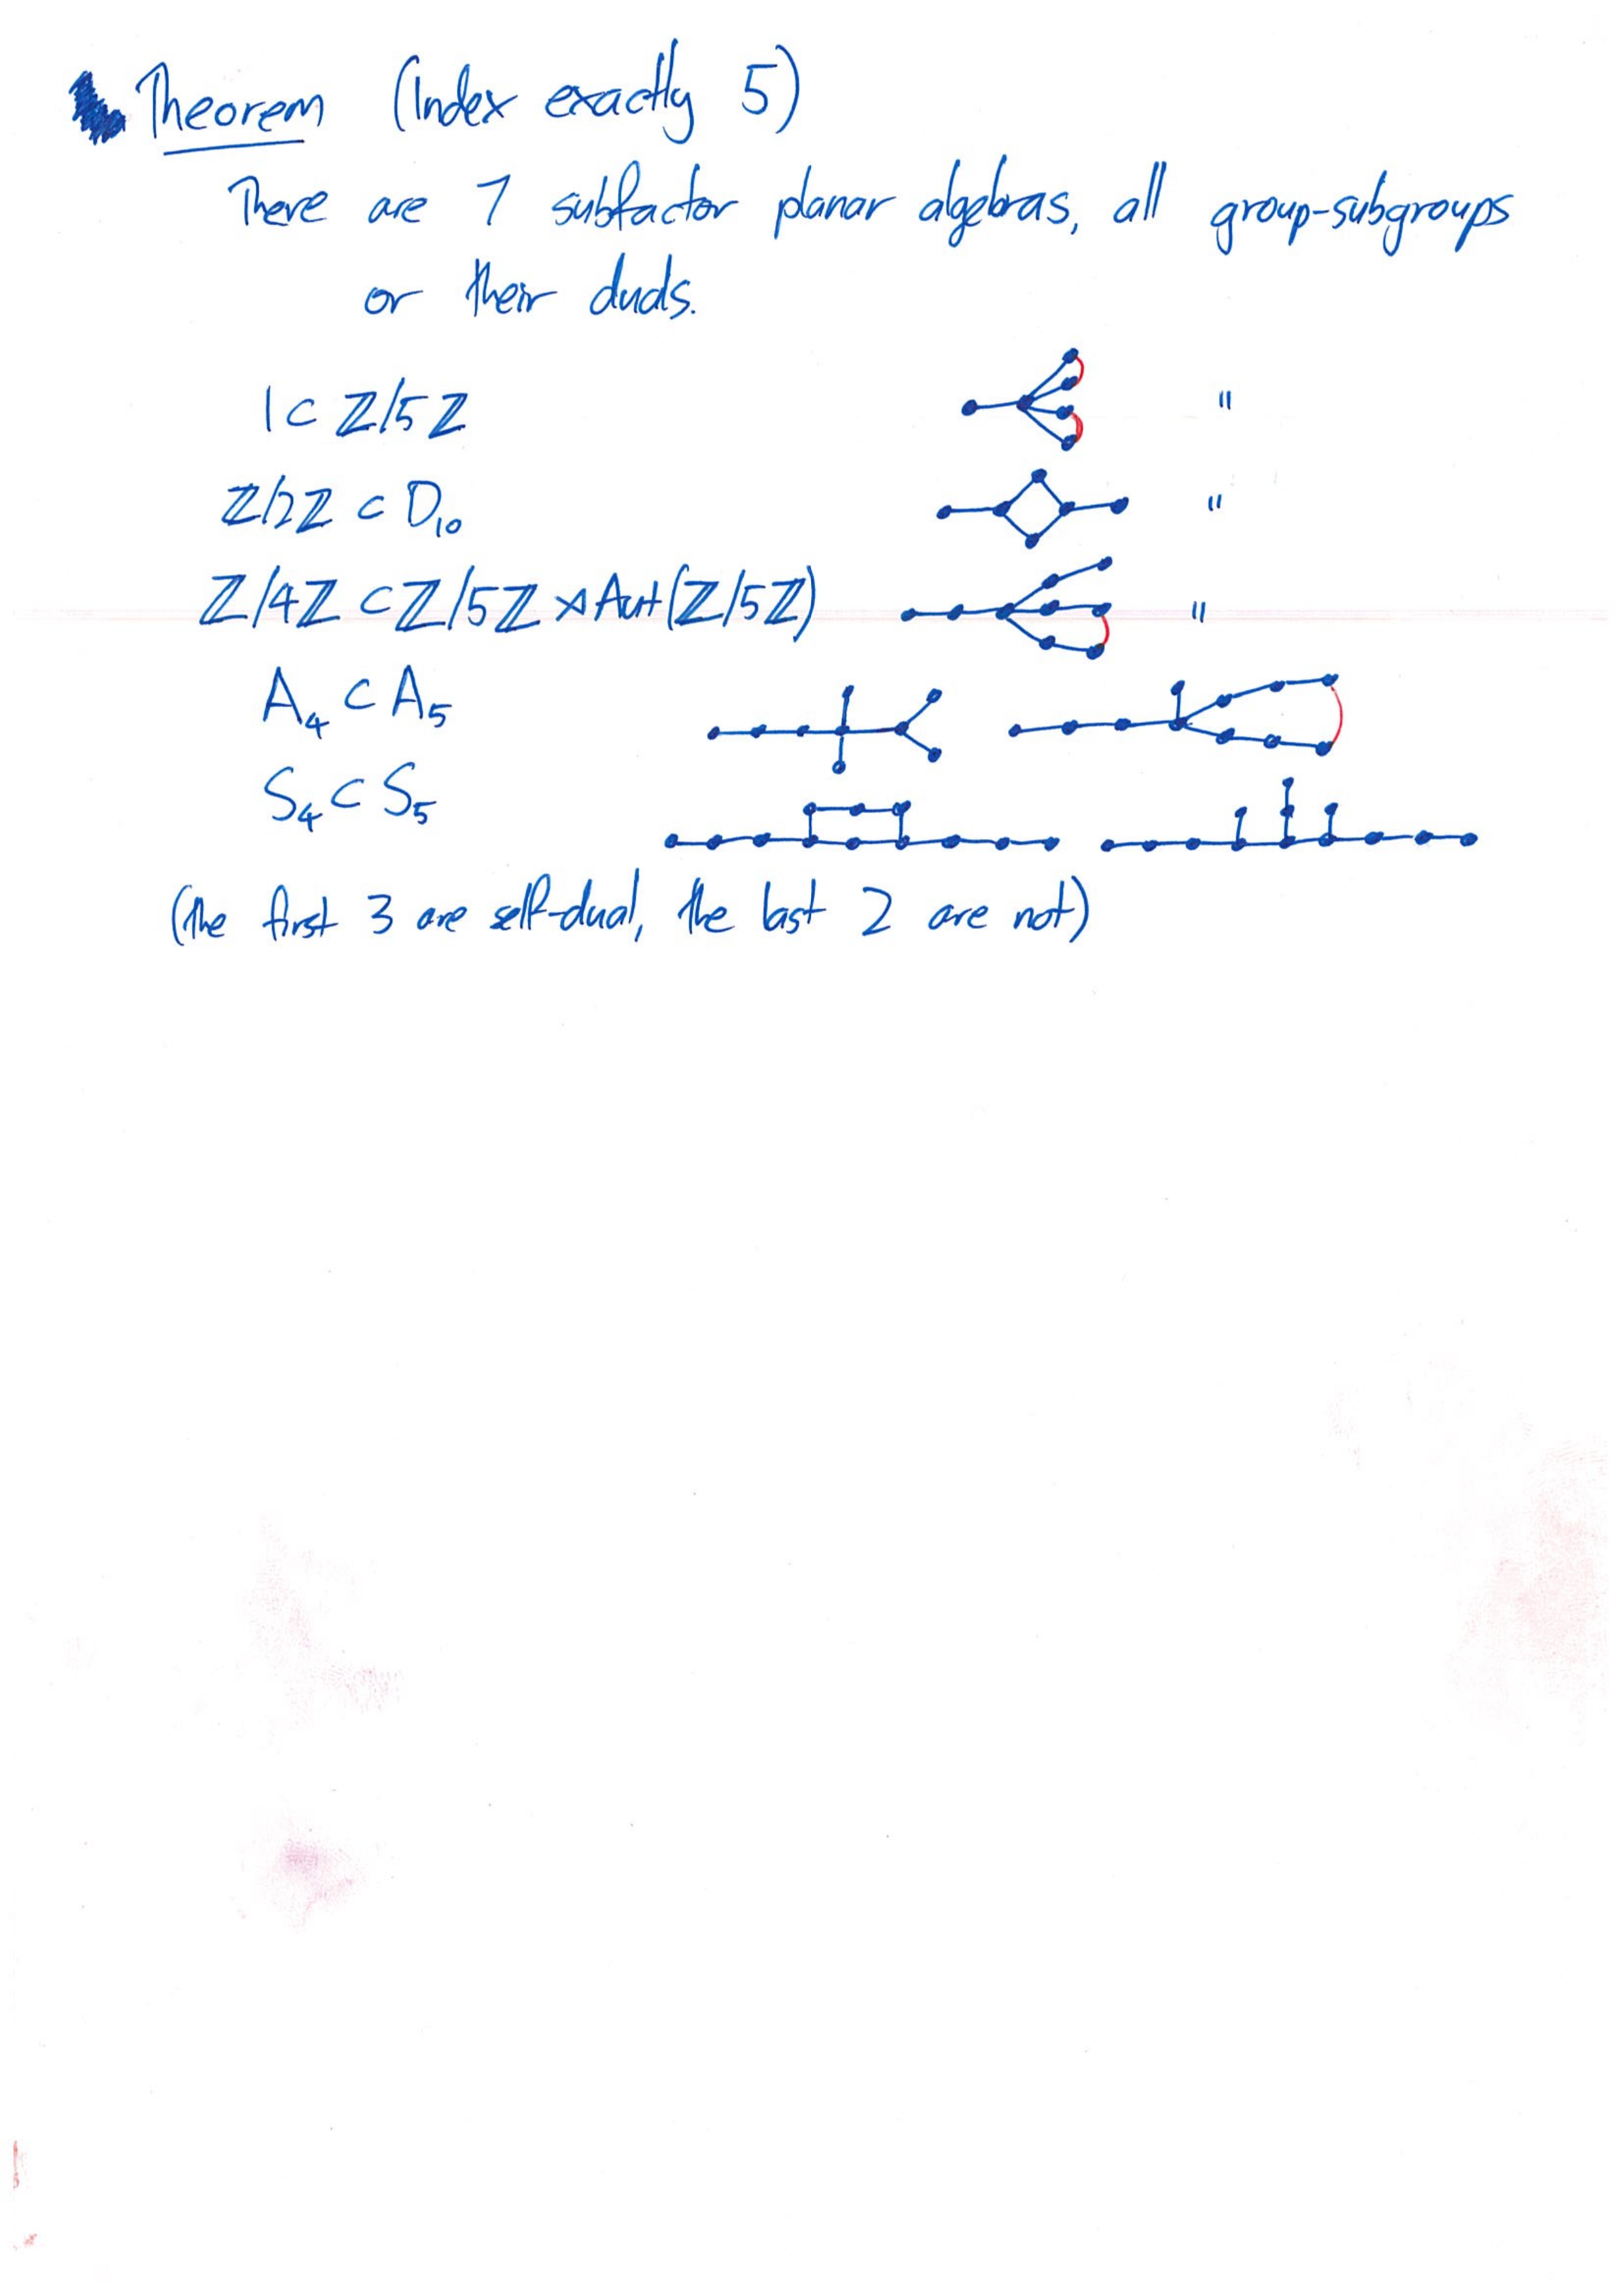 Theorem (Index exactly 5)
There are 7 subfactor planar algebras, all group-subgroups
or their duals.
1 ⊂ ℤ/5ℤ "
ℤ/2ℤ ⊂ D₁₀ "
ℤ/4ℤ ⊂ ℤ/5ℤ ⋊ Aut(ℤ/5ℤ) "
A₄ ⊂ A₅
S₄ ⊂ S₅
(the first 3 are self-dual, the last 2 are not)